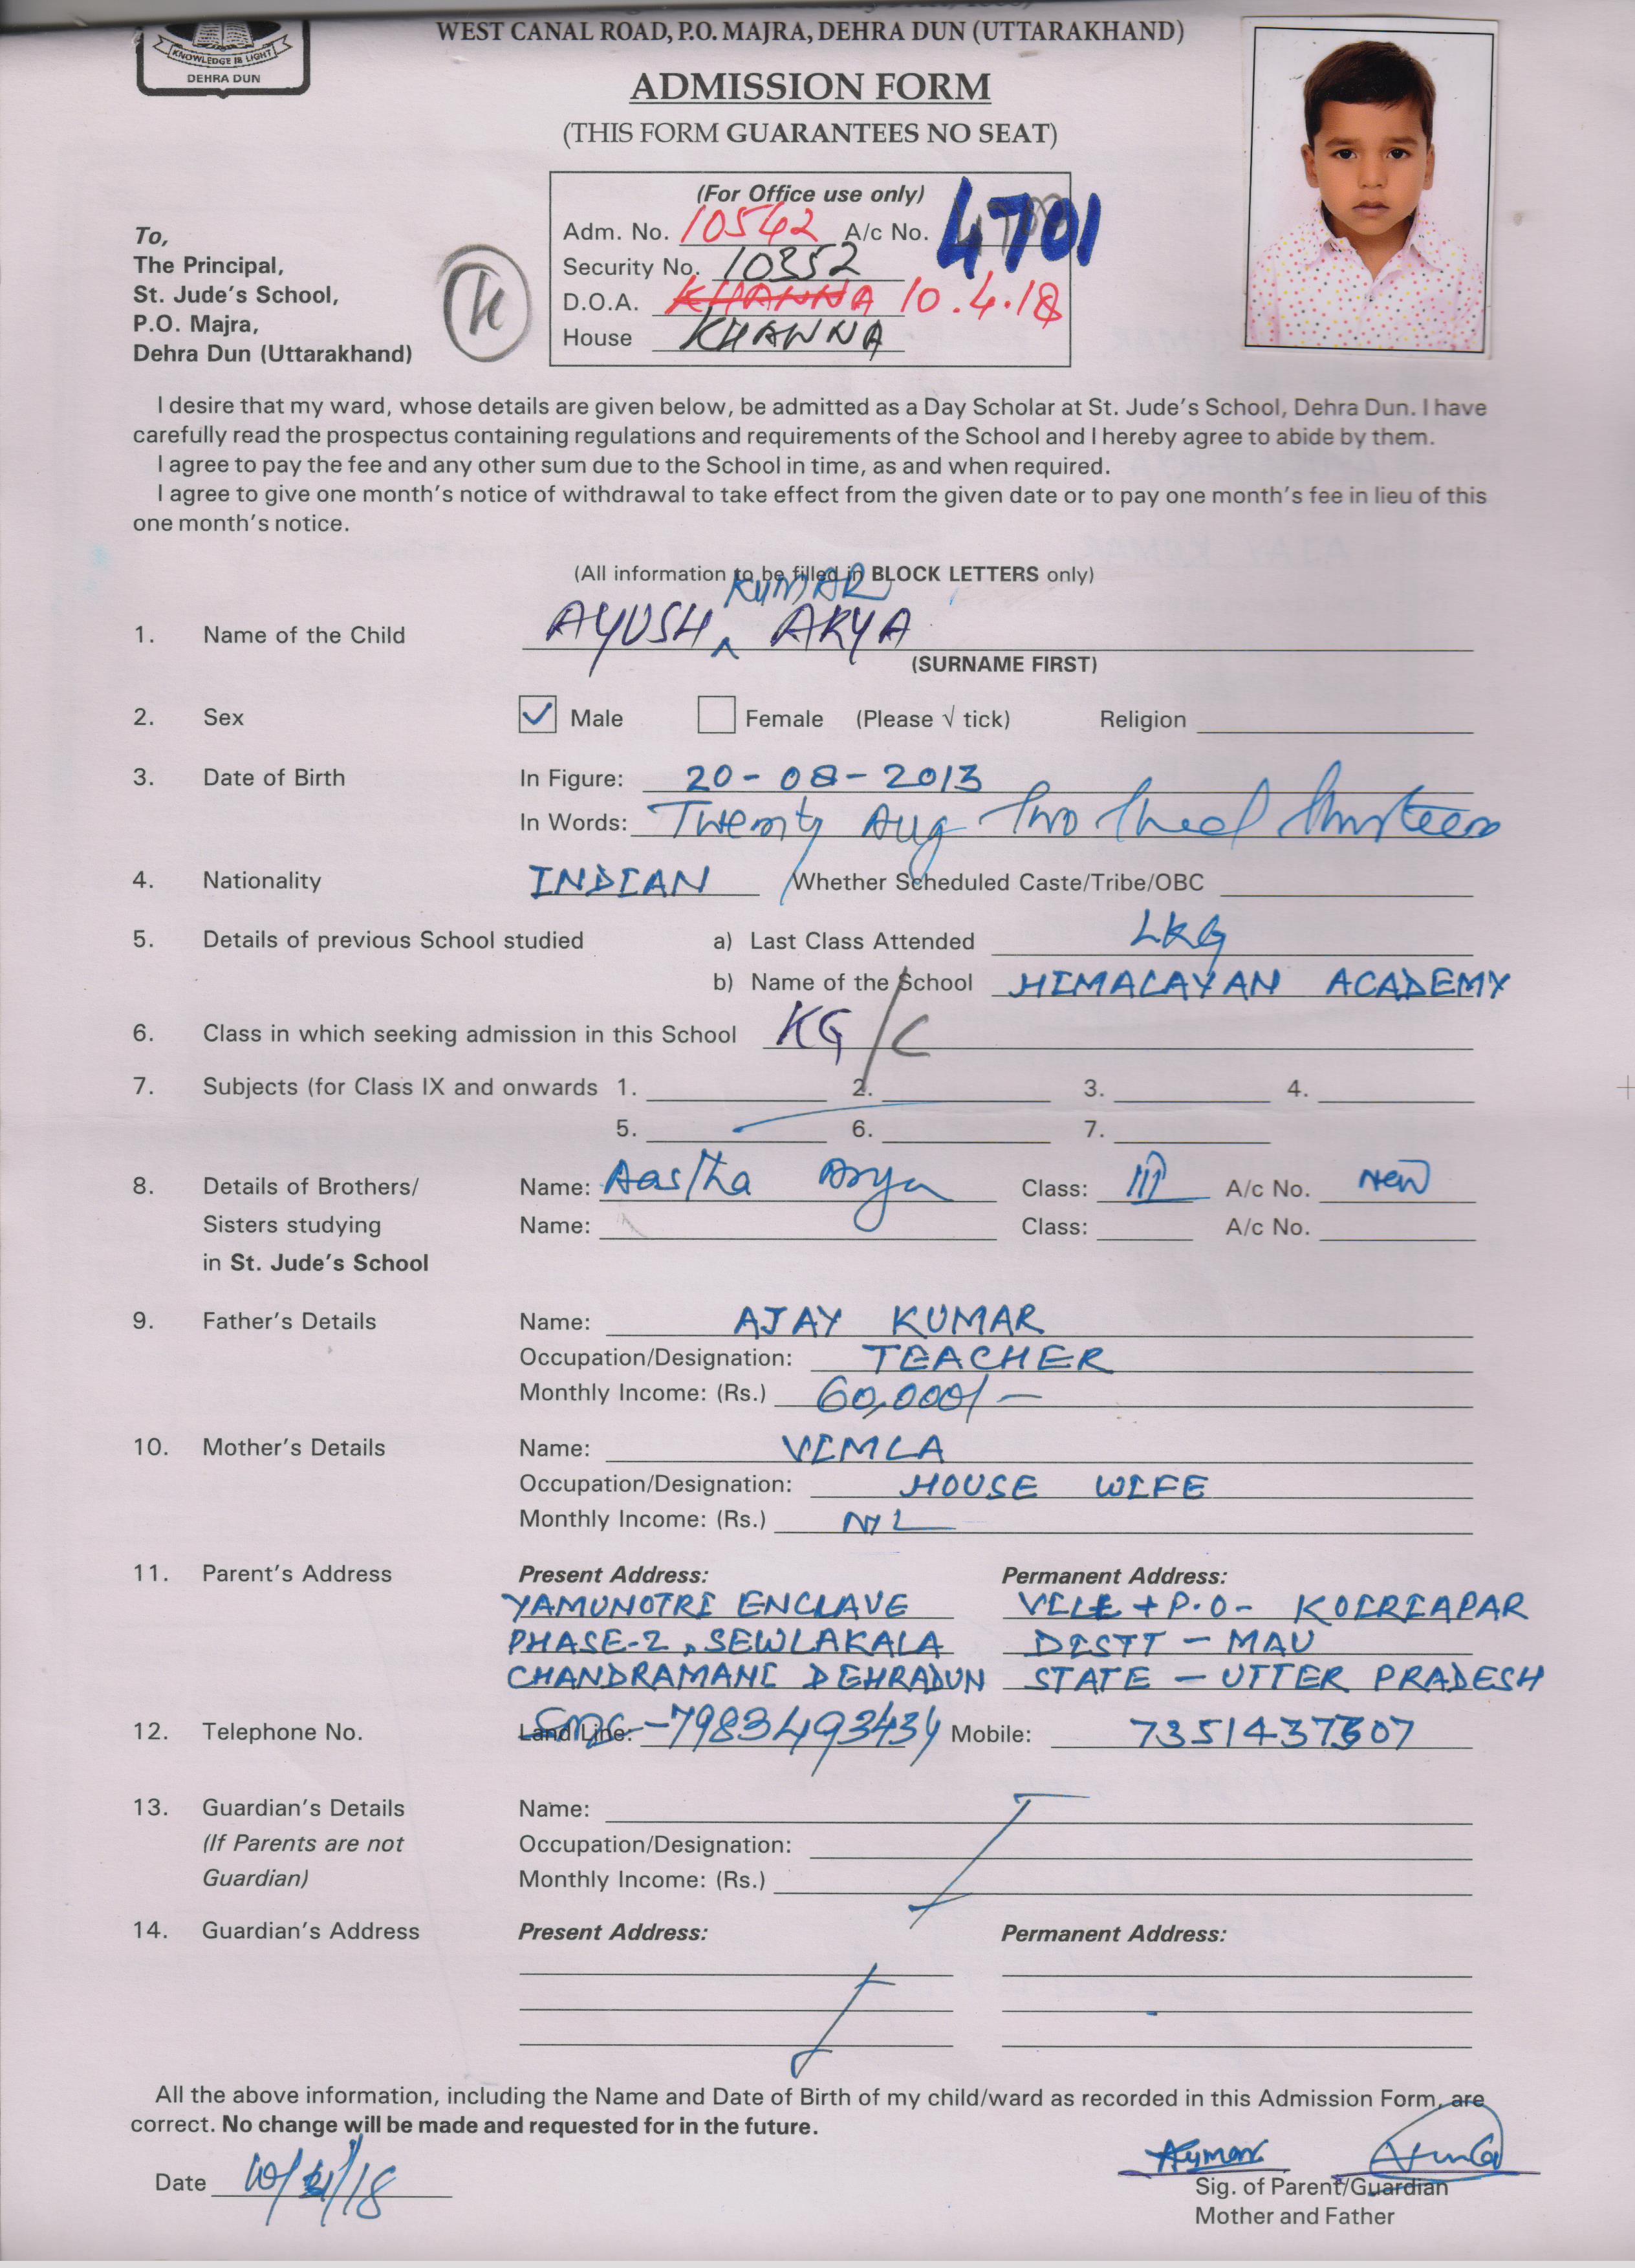 WEST CANAL ROAD, P.O. MAJRA, DEHRA DUN (UTTARAKHAND)
KNOWLEDGE IS LIGHT
DEHRA DUN
ADMISSION FORM
(THIS FORM GUARANTEES NO SEAT)
(For Office use only)
Adm. No. 10542 A/c No. 4701
Security No. 10352
D.O.A. KHANNA 10.4.18
House KHANNA
To,
The Principal,
St. Jude's School,
P.O. Majra,
Dehra Dun (Uttarakhand)
K
I desire that my ward, whose details are given below, be admitted as a Day Scholar at St. Jude's School, Dehra Dun. I have
carefully read the prospectus containing regulations and requirements of the School and I hereby agree to abide by them.
I agree to pay the fee and any other sum due to the School in time, as and when required.
I agree to give one month's notice of withdrawal to take effect from the given date or to pay one month's fee in lieu of this
one month's notice.
(All information to be filled in BLOCK LETTERS only)
KUMAR
1. Name of the Child AYUSH ^ ARYA
(SURNAME FIRST)
2. Sex ✓ Male Female (Please √ tick) Religion
3. Date of Birth In Figure: 20-08-2013
In Words: Twenty Aug Two
4. Nationality INDIAN Whether Scheduled Caste/Tribe/OBC
5. Details of previous School studied a) Last Class Attended LKG
b) Name of the School HIMALAYAN ACADEMY
6. Class in which seeking admission in this School KG/C
7. Subjects (for Class IX and onwards 1. 2. 3. 4.
5. 6. 7.
8. Details of Brothers/ Name: Aastha Arya Class: III A/c No. New
Sisters studying Name: Class: A/c No.
in St. Jude's School
9. Father's Details Name: AJAY KUMAR
Occupation/Designation: TEACHER
Monthly Income: (Rs.) 60,000/-
10. Mother's Details Name: VIMLA
Occupation/Designation: HOUSE WIFE
Monthly Income: (Rs.) NIL
11. Parent's Address Present Address: Permanent Address:
YAMUNOTRI ENCLAVE VILL + P.O- KOIRIAPAR
PHASE-2, SEWLAKALA DISTT - MAU
CHANDRAMANI DEHRADUN STATE - UTTER PRADESH
12. Telephone No. Land Line: SMS-7983493434 Mobile: 7351437307
13. Guardian's Details Name:
(If Parents are not Occupation/Designation:
Guardian) Monthly Income: (Rs.)
14. Guardian's Address Present Address: Permanent Address:
All the above information, including the Name and Date of Birth of my child/ward as recorded in this Admission Form, are
correct. No change will be made and requested for in the future.
Date 10/4/18
Sig. of Parent/Guardian
Mother and Father